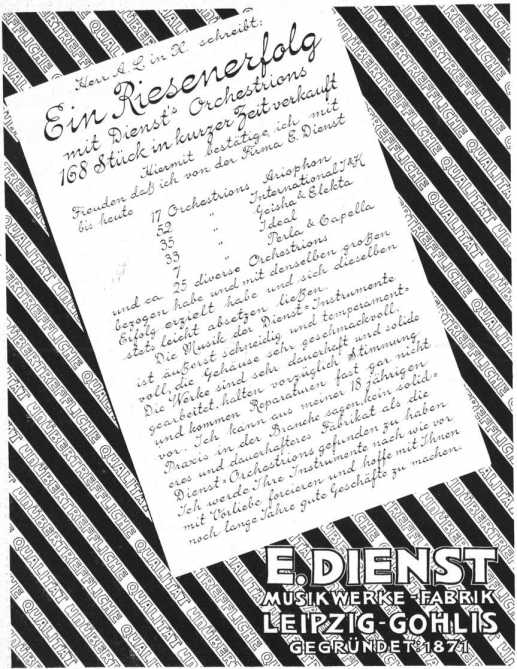 Herr A. L. in X. schreibt:
Ein Riesenerfolg
mit Dienst's Orchestrions
168 Stück in kurzer Zeit verkauft
Hiermit bestätige ich mit
Freuden daß ich von der Firma E. Dienst
bis heute 17 Orchestrions Ariophon
52 " International I & II
35 " Geisha & Elekta
33 " Ideal
7 " Perla & Capella
und ca. 25 diverse Orchestrions
bezogen habe und mit denselben großen
Erfolg erzielt habe und sich dieselben
stets leicht absetzen ließen.
Die Musik der Dienst-Instrumente
ist äußerst schneidig und temperament-
voll, die Gehäuse sehr geschmackvoll,
Die Werke sind sehr dauerhaft und solide
gearbeitet, halten vorzüglich Stimmung
und kommen Reparaturen fast gar nicht
vor. Ich kann aus meiner 18 jährigen
Praxis in der Branche sagen, kein solid-
eres und dauerhafteres Fabrikat als die
Dienst-Orchestrions gefunden zu haben
Ich werde Ihre Instrumente nach wie vor
mit Vorliebe forcieren und hoffe mit Ihnen
noch lange Jahre gute Geschäfte zu machen.
UNÜBERTREFFLICHE QUALITÄT
E. DIENST
MUSIKWERKE-FABRIK
LEIPZIG-GOHLIS
GEGRÜNDET: 1871